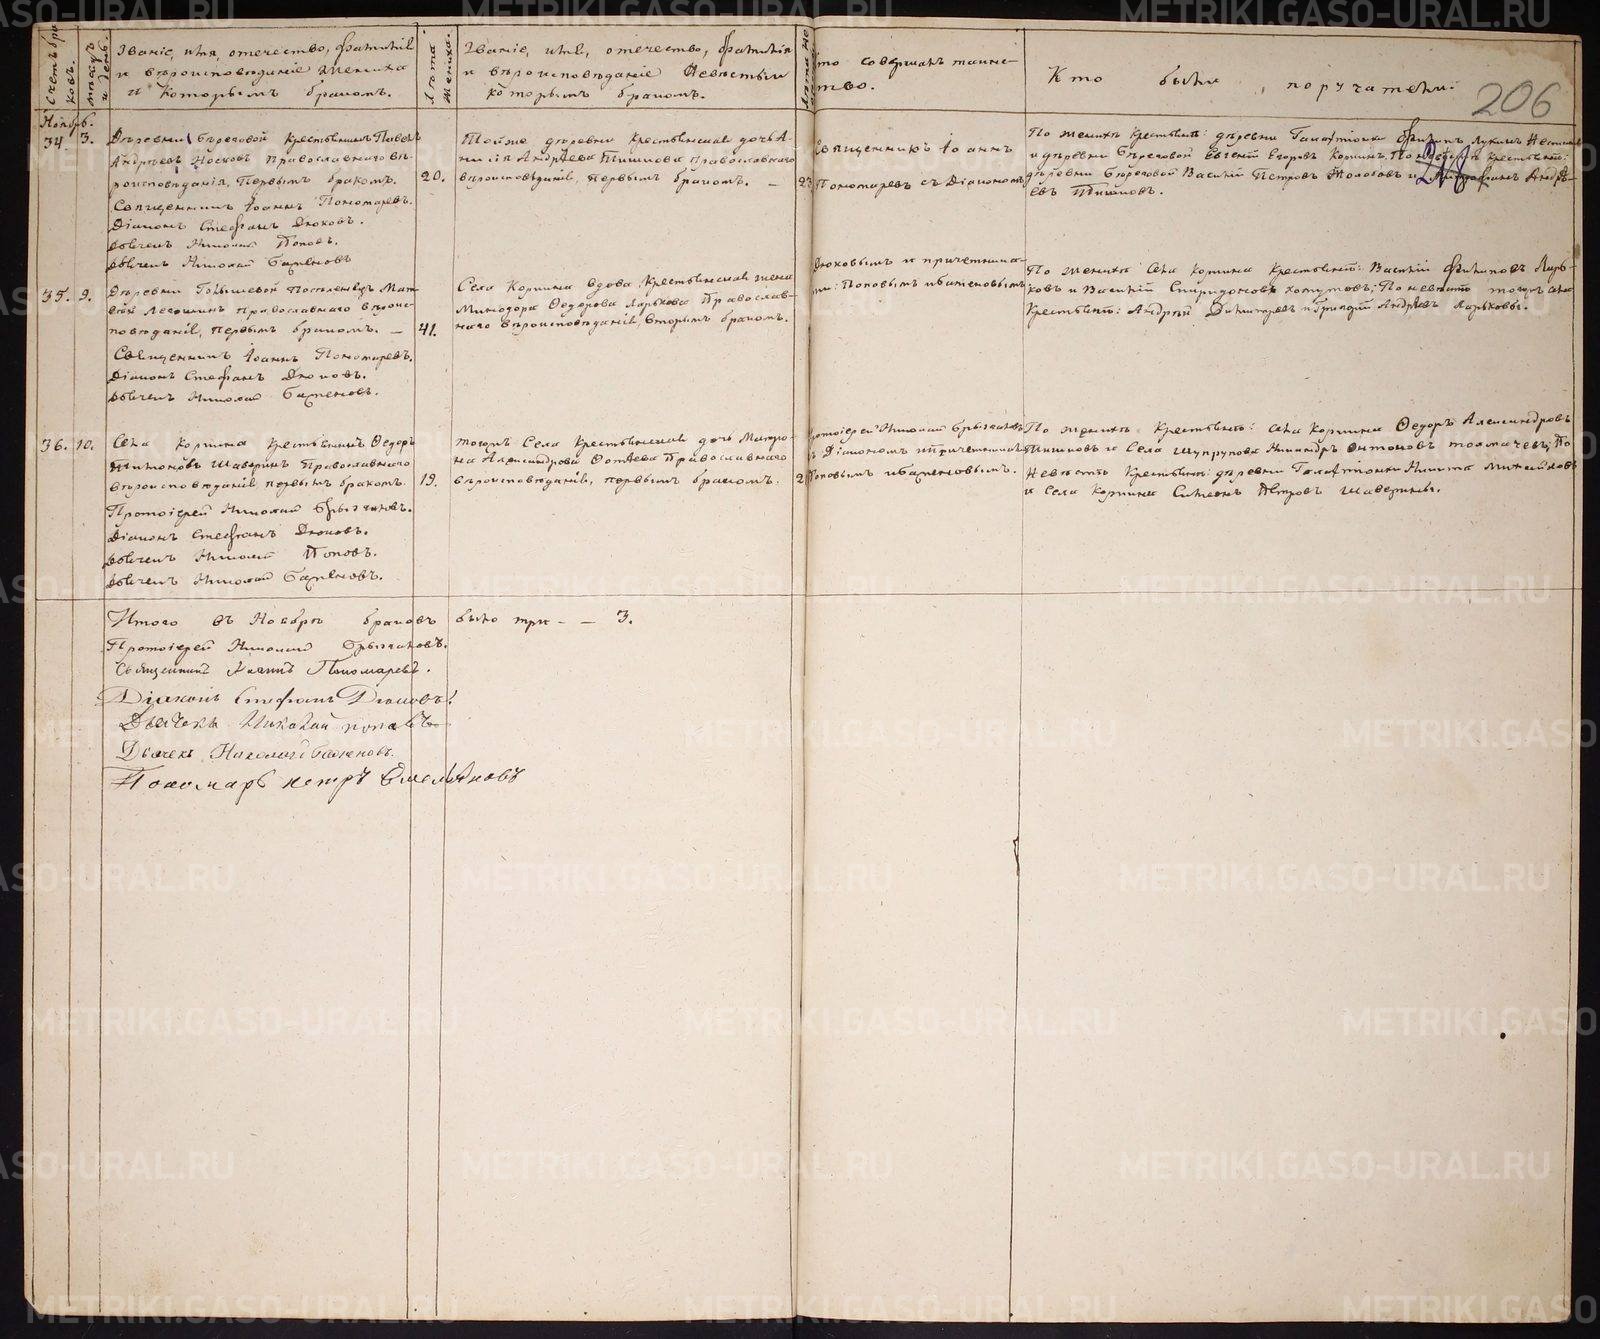 Счетъ бра-
ковъ.
Мѣсяцъ
и день.
Званіе, имя, отечество, фамилія
и вѣроисповѣданіе жениха
и которымъ бракомъ.
Лѣта
жениха.
Званіе, имя, отечество, фамилія
и вѣроисповѣданіе невѣсты и
которымъ бракомъ.
то совершалъ таинс-
тво.
Кто были поручатели.
206
Ноябрь.
34. 3.
Деревни Береговой крестьянинъ Павелъ
Андреевъ Носковъ Православнаго вѣ-
роисповѣданія, первымъ бракомъ.
Священникъ Іоаннъ Пономаревъ.
Діаконъ Стефанъ Дюковъ.
Дьячекъ Николай Поповъ.
Дьячекъ Николай Баженовъ
20.
Тойже деревни крестьянская дочь А-
Андреева Тишкова Православнаго
вѣроисповѣданія, первымъ бракомъ. —
Священникъ Іоаннъ
Пономаревъ съ Діакономъ
Дюковымъ и причетника-
ми: Поповымъ и Баженовымъ
По женихѣ крестьяне: деревни
и деревни Береговой Евгеній Егоровъ Коркинъ; По невѣстѣ крестьяне:
деревни Береговой Василій Петровъ и Андре-
евъ Тишковъ.
35. 9.
Деревни поселенецъ Мат-
вѣй Православнаго вѣроис-
повѣданія, первымъ бракомъ. —
Священникъ Іоаннъ Пономаревъ.
Діаконъ Стефанъ Дюковъ.
Дьячекъ Николай Баженовъ.
41.
Села Коркина вдова, крестьянская жена
Минодора Ѳедорова Ларькова Православ-
наго вѣроисповѣданія, вторымъ бракомъ.
По женихѣ села Коркина крестьяне: Василій Филиповъ Ларь-
ковъ и Василій Спиридоновъ Хомутовъ; По невѣстѣ тогоже села
крестьяне: Андрей Димитріевъ и Григорій Андреевъ Ларьковы.
36. 10.
Села Коркина крестьянинъ Ѳедоръ
Шаверинъ Православнаго
вѣроисповѣданія первымъ бракомъ.
Протоіерей Николай Брызгаловъ.
Діаконъ Стефанъ Дюковъ.
Дьячекъ Николай Поповъ.
Дьячекъ Николай Баженовъ.
19.
тогоже Села крестьянская дочь Матро-
на Александрова Православнаго
вѣроисповѣданія, первымъ бракомъ.
Протоіерей Николай Брызгаловъ
съ Діакономъ и причетниками
Поповымъ и Баженовымъ.
По женихѣ крестьяне: села Коркина Ѳедоръ Александровъ
Тишковъ и Села Никандръ Антоновъ Толмачевъ; По
Невѣстѣ крестьяне: деревни Никита Михайловъ
и Села Коркина Петровъ Шаверины.
Итого въ Ноябрѣ браковъ было три — — 3.
Протоіерей Николай Брызгаловъ.
Священникъ Іоаннъ Пономаревъ.
Діаконъ Стефанъ Дюковъ.
Дьячекъ Николай Поповъ
Дьячекъ Николай Баженовъ.
Пономарь Петръ Емельяновъ
METRIKI.GASO-URAL.RU